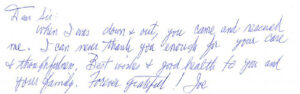 Dear Sir:
When I was down & out, you came and rescued
me. I can never thank you enough for your care
& thoughtfulness, Best wishes & good health to you and
your family. Forever grateful! Joe